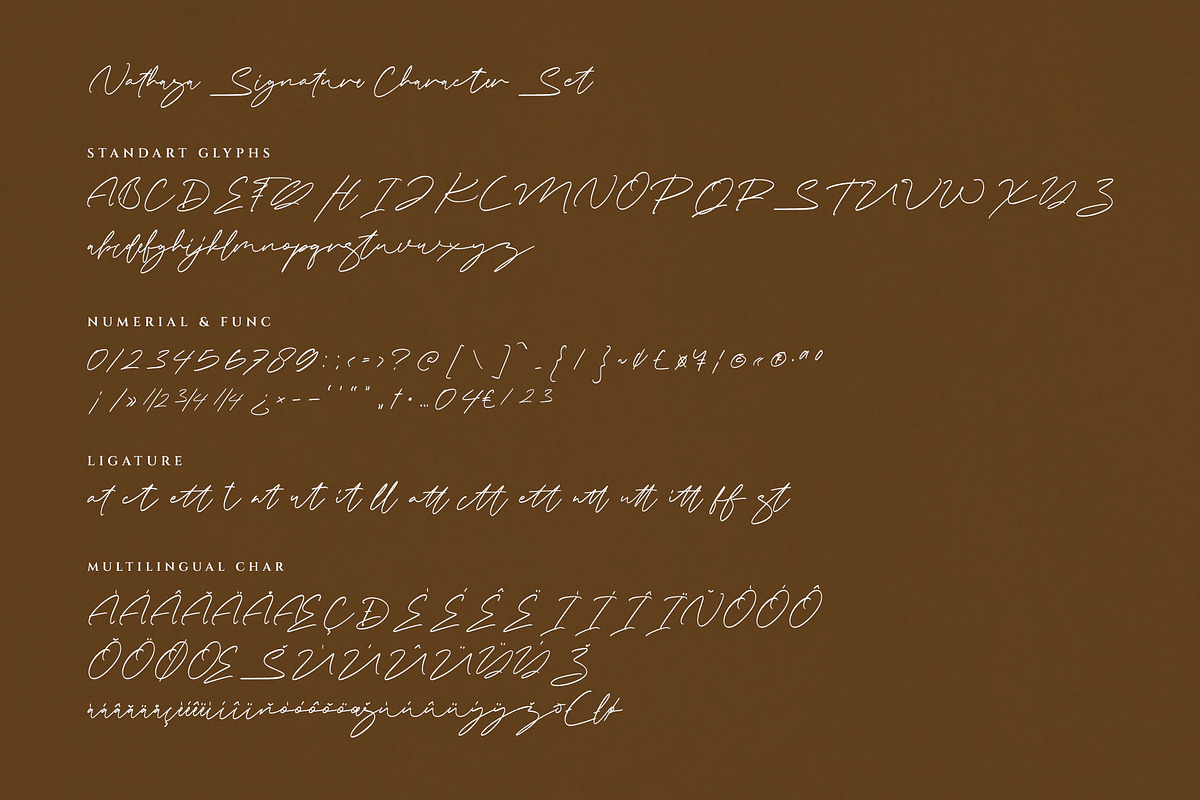 Nathaza Signature Character Set
STANDART GLYPHS
ABCDEFGHIJKLMNOPQRSTUVWXYZ
abcdefghijklmnopqrstuvwxyz
NUMERIAL & FUNC
0123456789:;<=>?@[\]^_{|}~¢£¤¥¦©«®·ªº
¡/»1/23/41/4¿×–—‘’“”„†•…04€123
LIGATURE
at ct ett t nt ut it ll att ctt ett ntt utt itt ff st
MULTILINGUAL CHAR
ÀÁÂÃÄÅÆÇÐÈÉÊËÌÍÎÏÑÒÓÔ
ÕÖØŒŠÙÚÛÜŸÝŽ